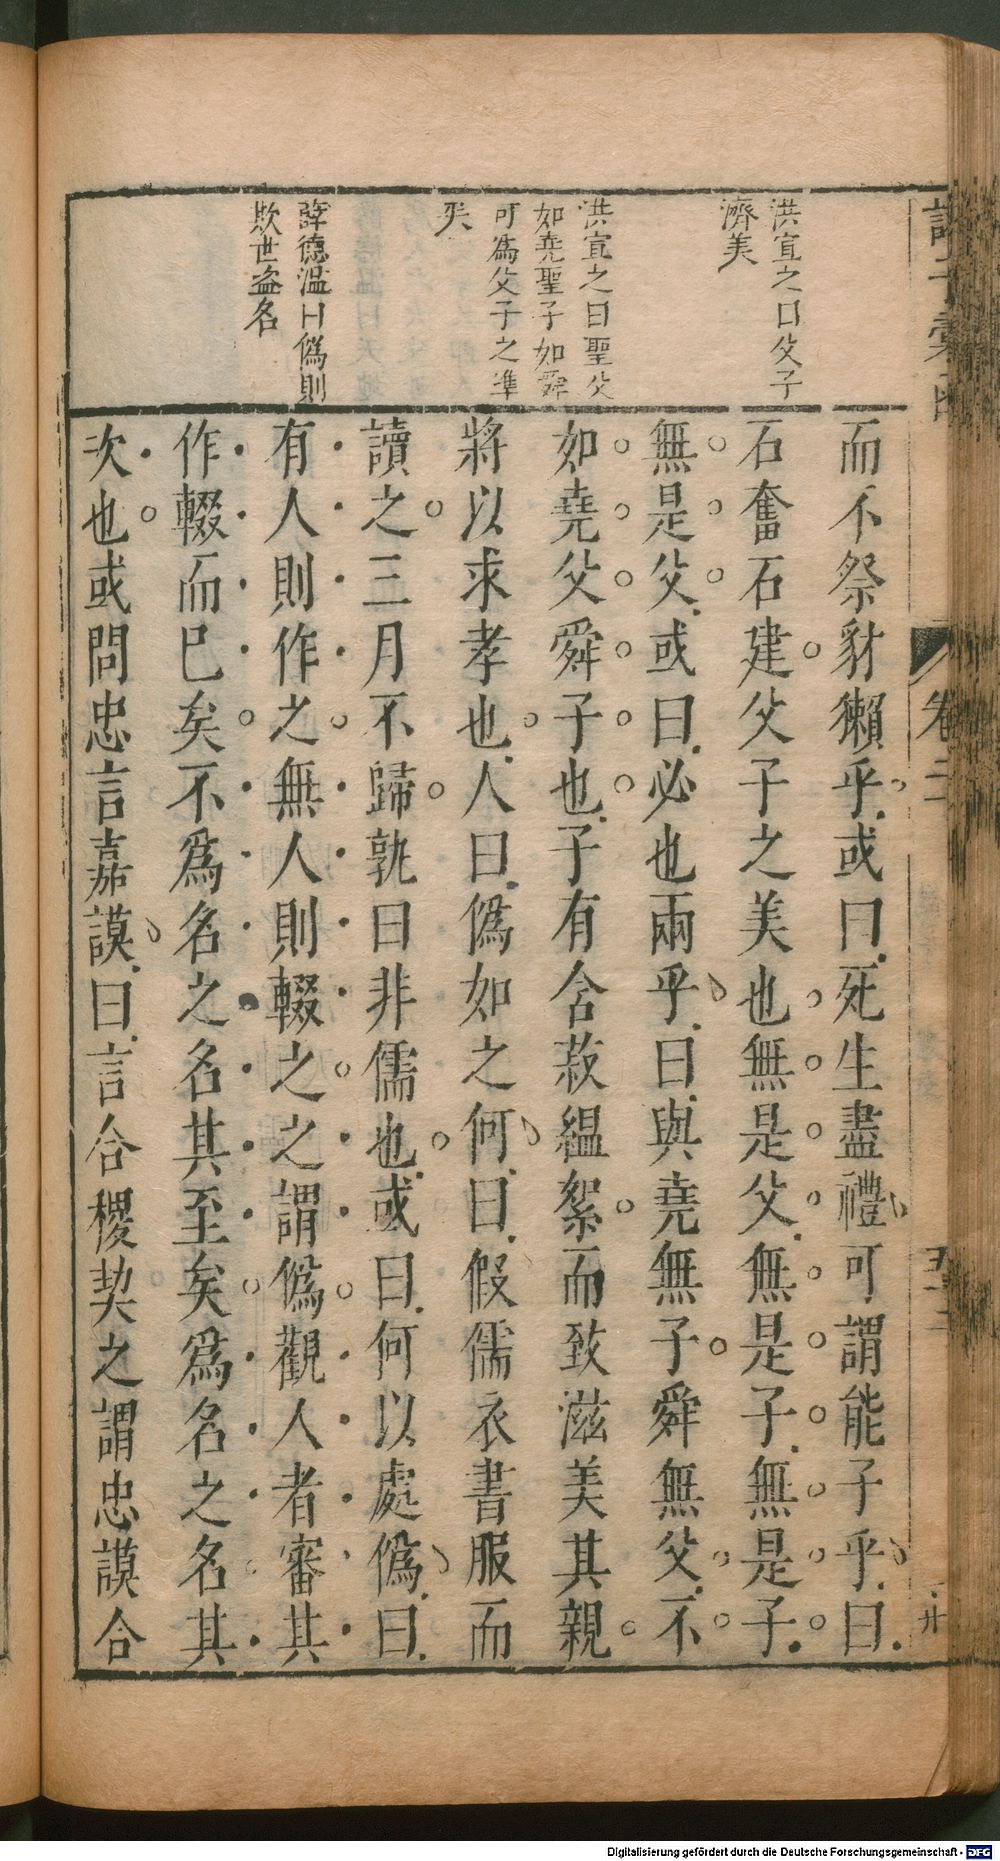 洪宜之曰父子
濟美
洪宜之曰聖父
如堯聖子如舜
可為父子之準
矣
薛德溫曰偽則
欺世盜名
卷二
而不祭豺獺乎或曰死生盡禮可謂能子乎曰
石奮石建父子之美也無是父無是子無是子
無是父或曰必也兩乎曰與堯無子舜無父不
如堯父舜子也子有含菽縕絮而致滋美其親
將以求孝也人曰偽如之何曰假儒衣書服而
讀之三月不歸孰曰非儒也或曰何以處偽曰
有人則作之無人則輟之之謂偽觀人者審其
作輟而巳矣不為名之名其至矣為名之名其
次也或問忠言嘉謨曰言合稷契之謂忠謨合
Digitalisierung gefördert durch die Deutsche Forschungsgemeinschaft - DFG